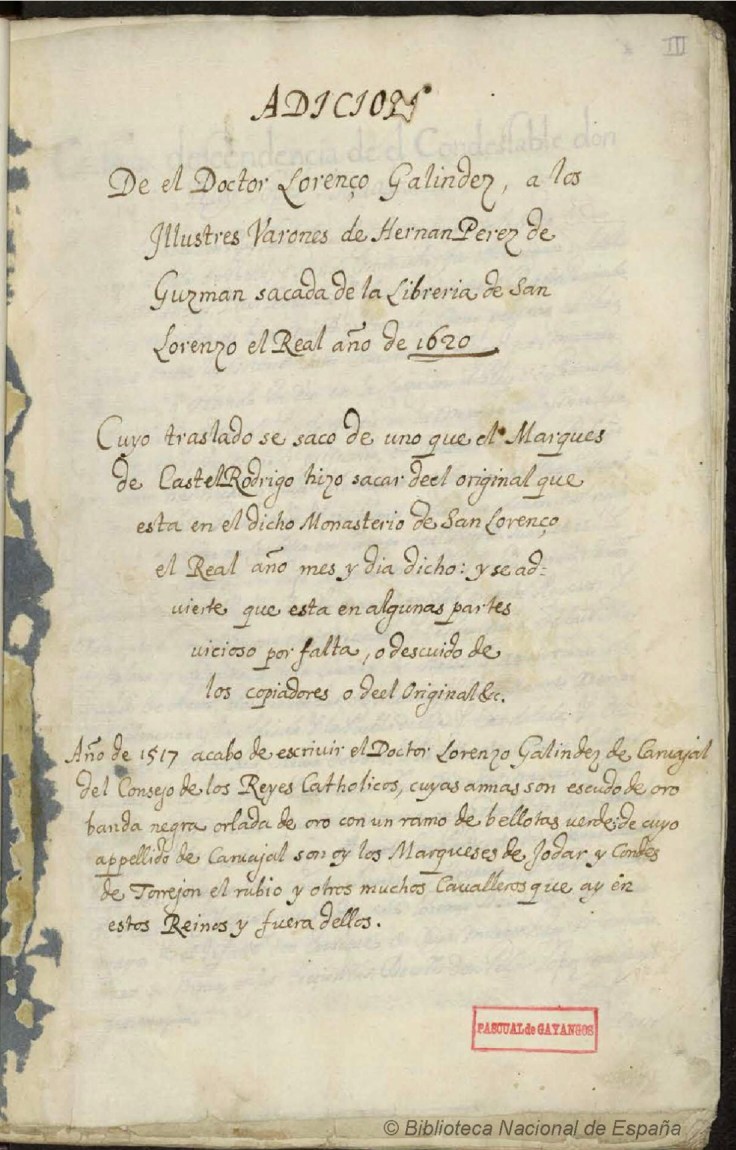 III
ADICION
De el Doctor Lorenço Galindez, a los
Illustres Varones de Hernan Perez de
Guzman sacada de la Libreria de San
Lorenzo el Real año de 1620
Cuyo traslado se saco de uno que el Marques
de CastelRodrigo hizo sacar deel original que
esta en el dicho Monasterio de San Lorenço
el Real año mes y dia dicho: y se ad=
uierte que esta en algunas partes
vicioso por falta, o descuido de
los copiadores o deel Original &c.
Año de 1517 acabo de escrivir el Doctor Lorenzo Galindez de Caruajal
del Consejo de los Reyes Catholicos, cuyas armas son escudo de oro
banda negra orlada de oro con un ramo de bellotas verde; de cuyo
appellido de Caruajal son oy los Marqueses de Jodar y Condes
de Torrejon el rubio y otros muchos Cavalleros que ay en
estos Reinos y fuera dellos.
PASCUAL de GAYANGOS
© Biblioteca Nacional de España